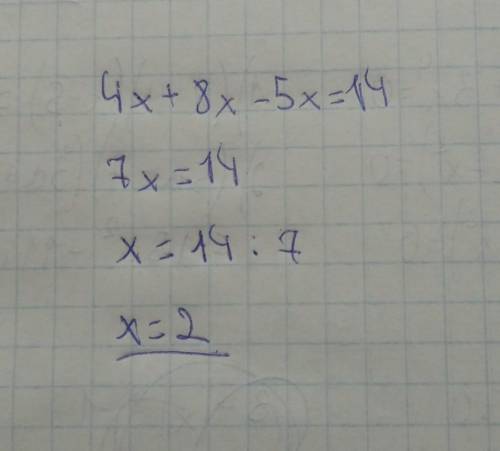 4x+8x-5x=14
7x=14
x=14:7
x=2